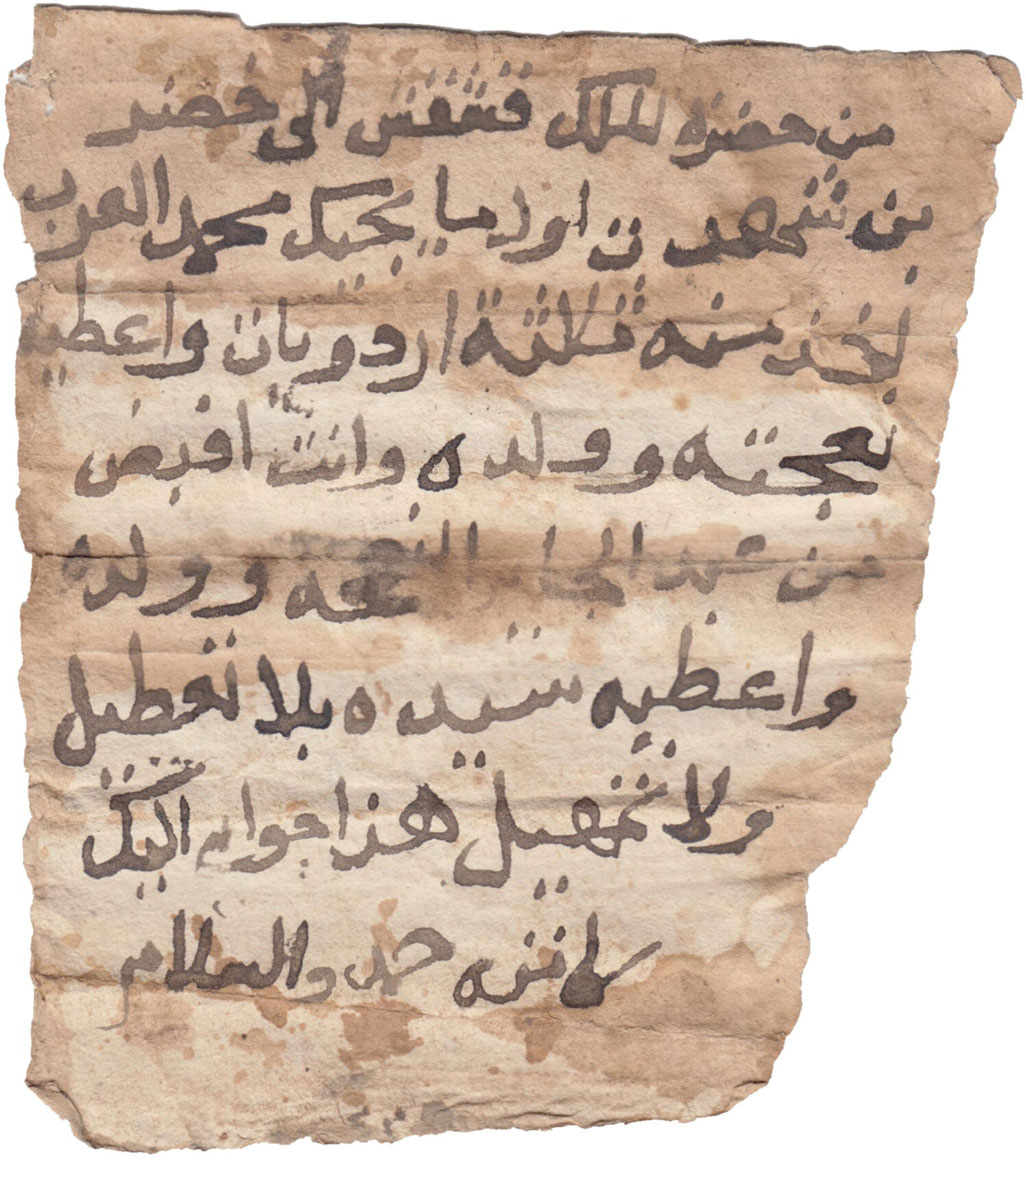 من حضرة الملك قشقش الى خضر
بن شهد ن اول ما يجيك محمد العرب
لخذ منه ثلاثة اردويات واعطيه
نعجته وولده وانت اقبض
من عبد الجابر النعجه وولده
واعطيه سيده بلا تعطيل
ولا تمهيل هذا جوابه اليك
كاتبه حمد والسلام